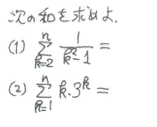 次の和を求めよ.
(1) \sum_{k=2}^{n} \frac{1}{k^2-1} =
(2) \sum_{k=1}^{n} k \cdot 3^k =